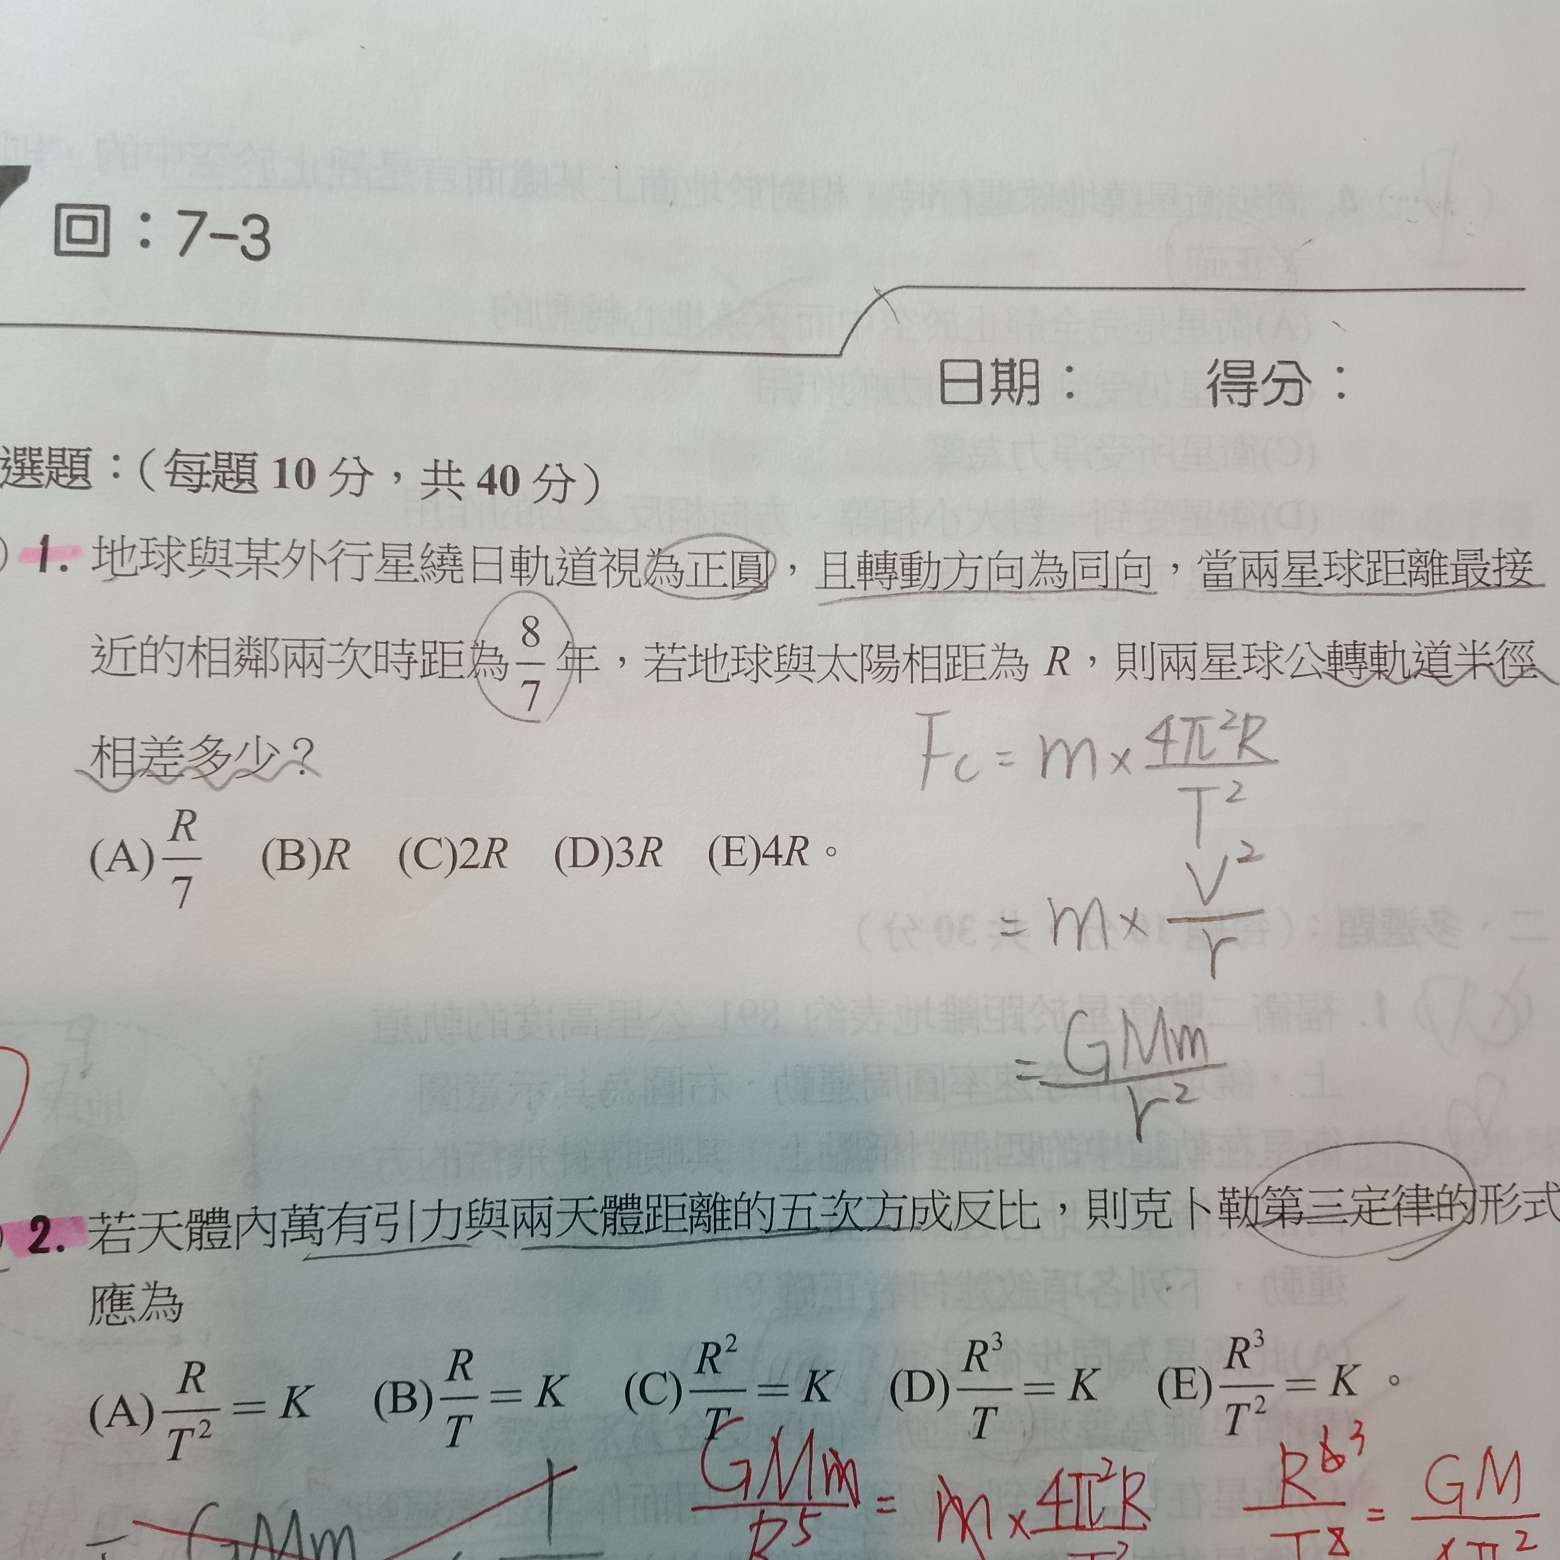 回：7-3
日期：　　得分：
選題：（每題 10 分，共 40 分）
) 1. 地球與某外行星繞日軌道視為正圓，且轉動方向為同向，當兩星球距離最接
近的相鄰兩次時距為 8/7 年，若地球與太陽相距為 R，則兩星球公轉軌道半徑
相差多少？
Fc = m × 4π²R / T²
(A) R/7 (B)R (C)2R (D)3R (E)4R。
= m × V² / r
= GMm / r²
) 2. 若天體內萬有引力與兩天體距離的五次方成反比，則克卜勒第三定律的形式
應為
(A) R/T² = K (B) R/T = K (C) R²/T = K (D) R³/T = K (E) R³/T² = K 。
GMm / R⁵ = m × 4π²R / T²
GMm